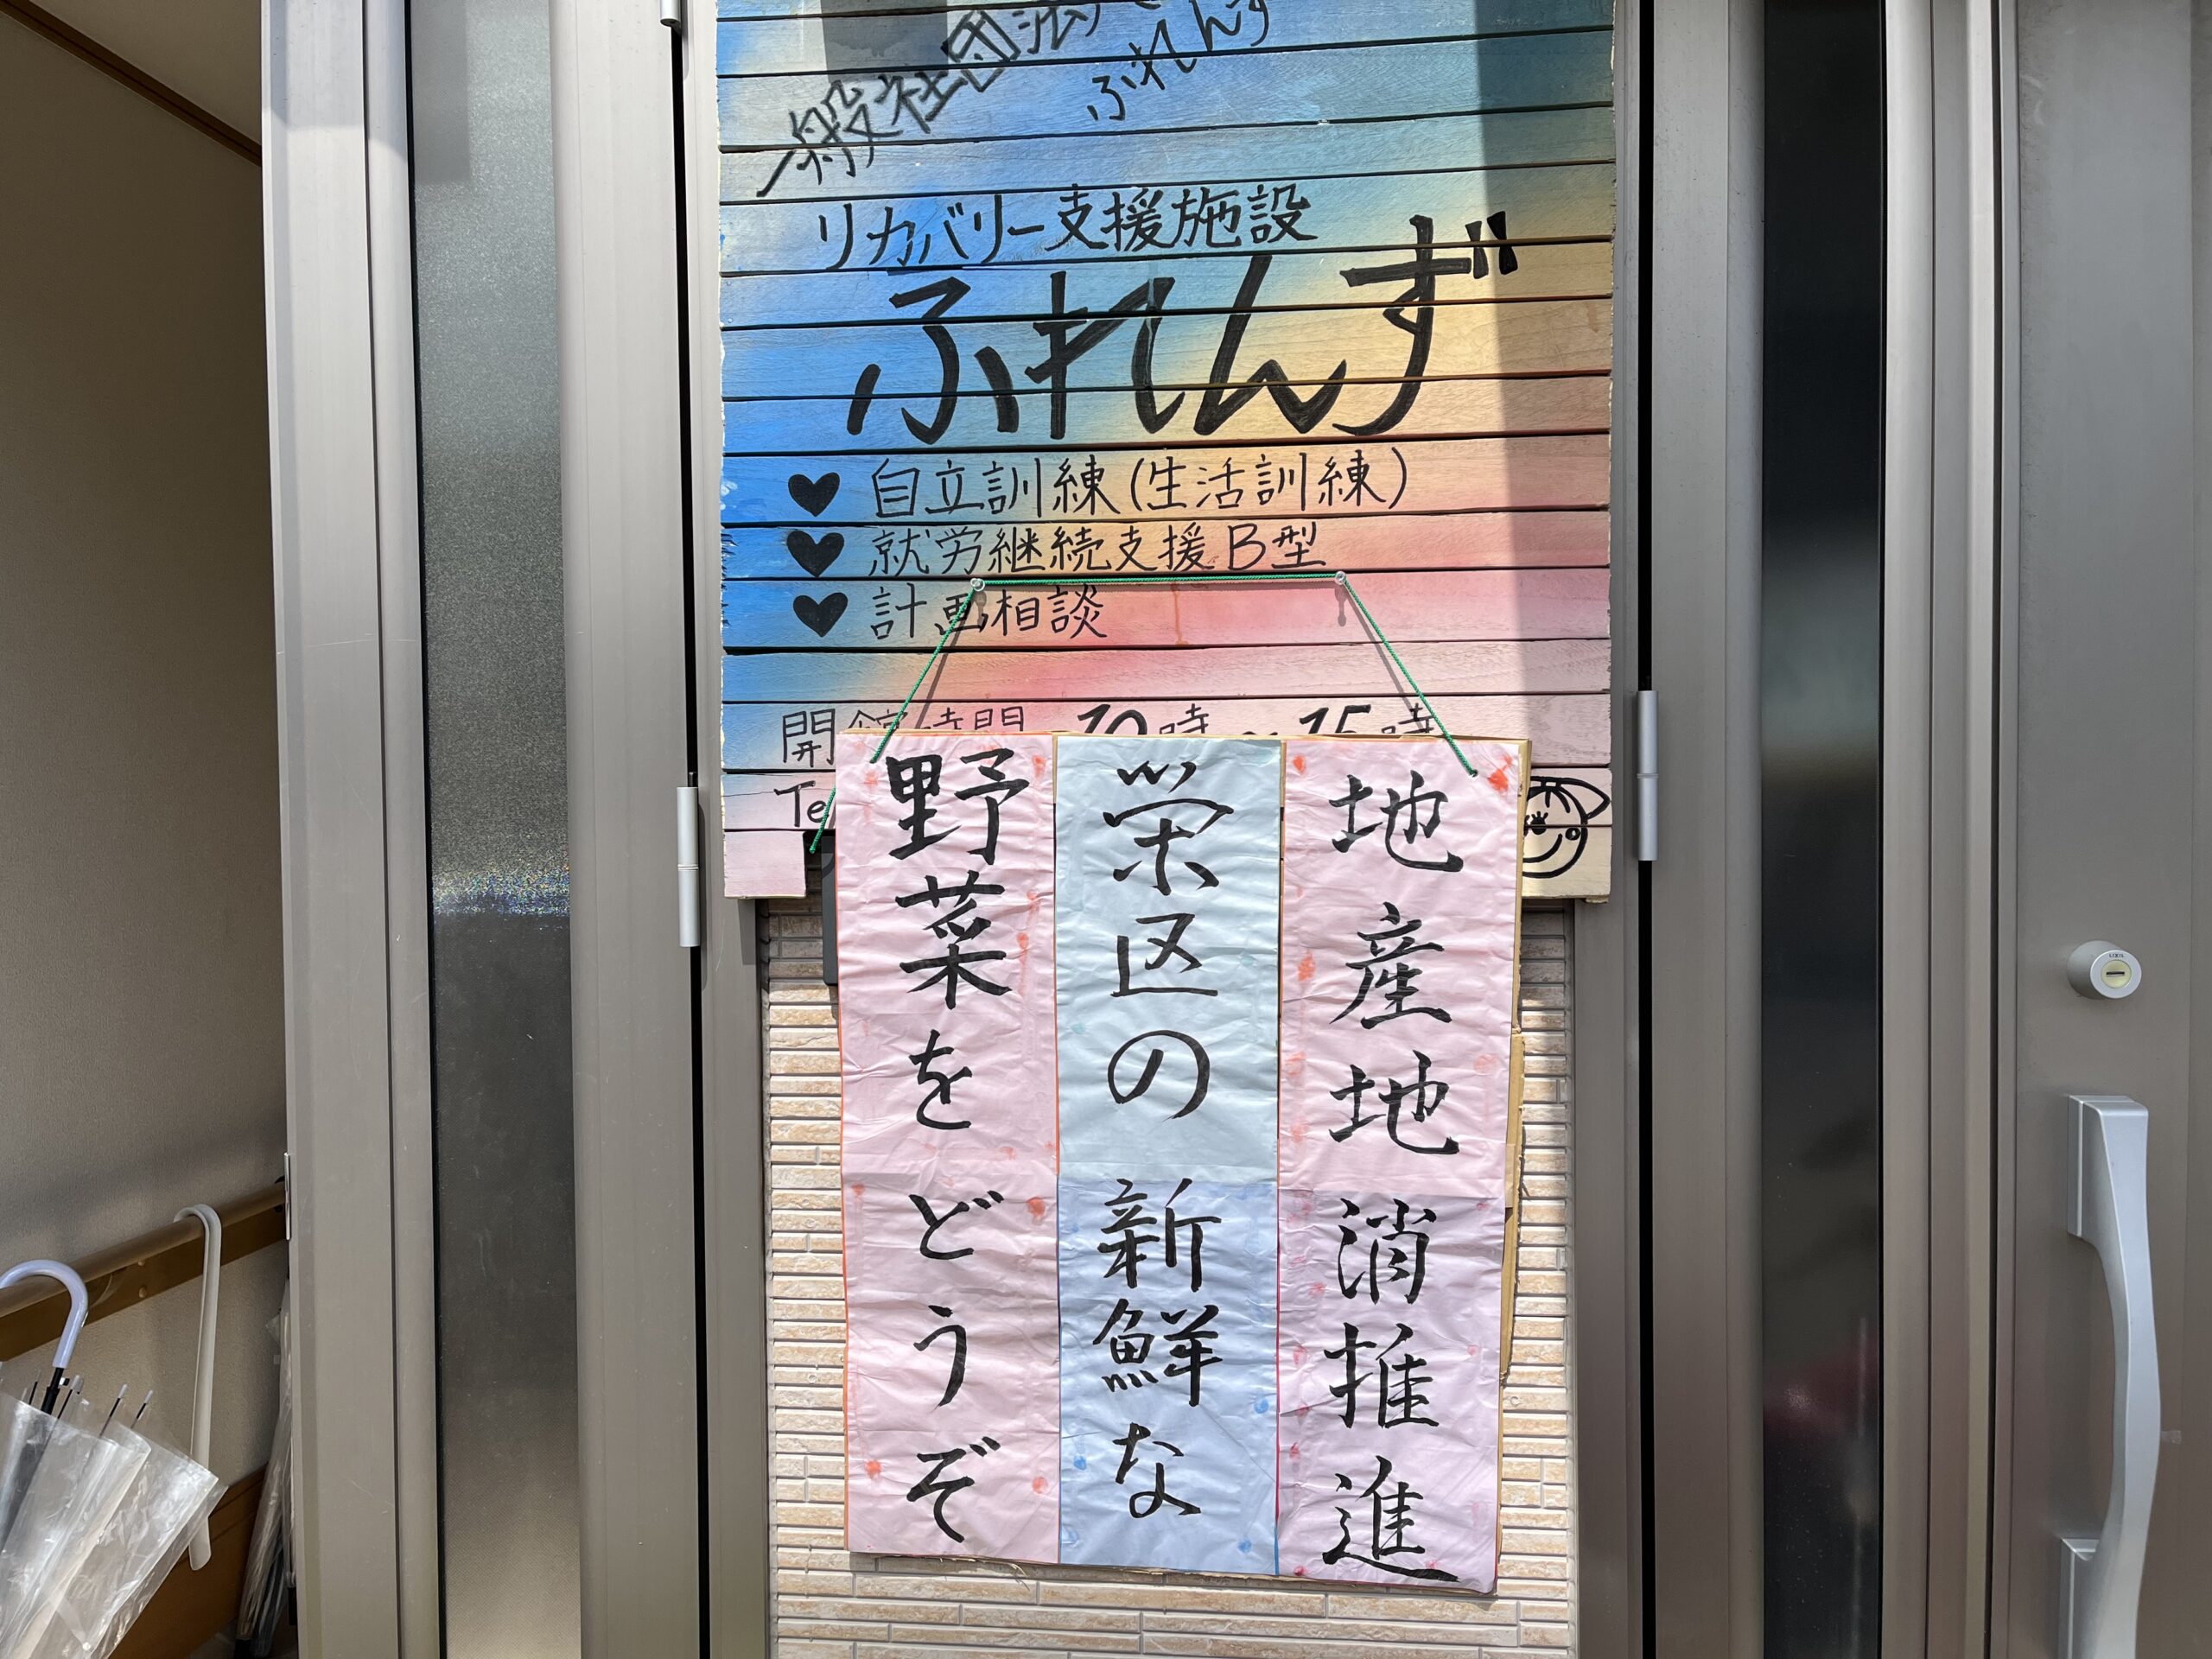 一般社団法人
ふれんず
リカバリー支援施設
ふれんず
♥ 自立訓練(生活訓練)
♥ 就労継続支援B型
♥ 計画相談
開館時間 10時~15時
地産地消推進
栄区の新鮮な
野菜をどうぞ